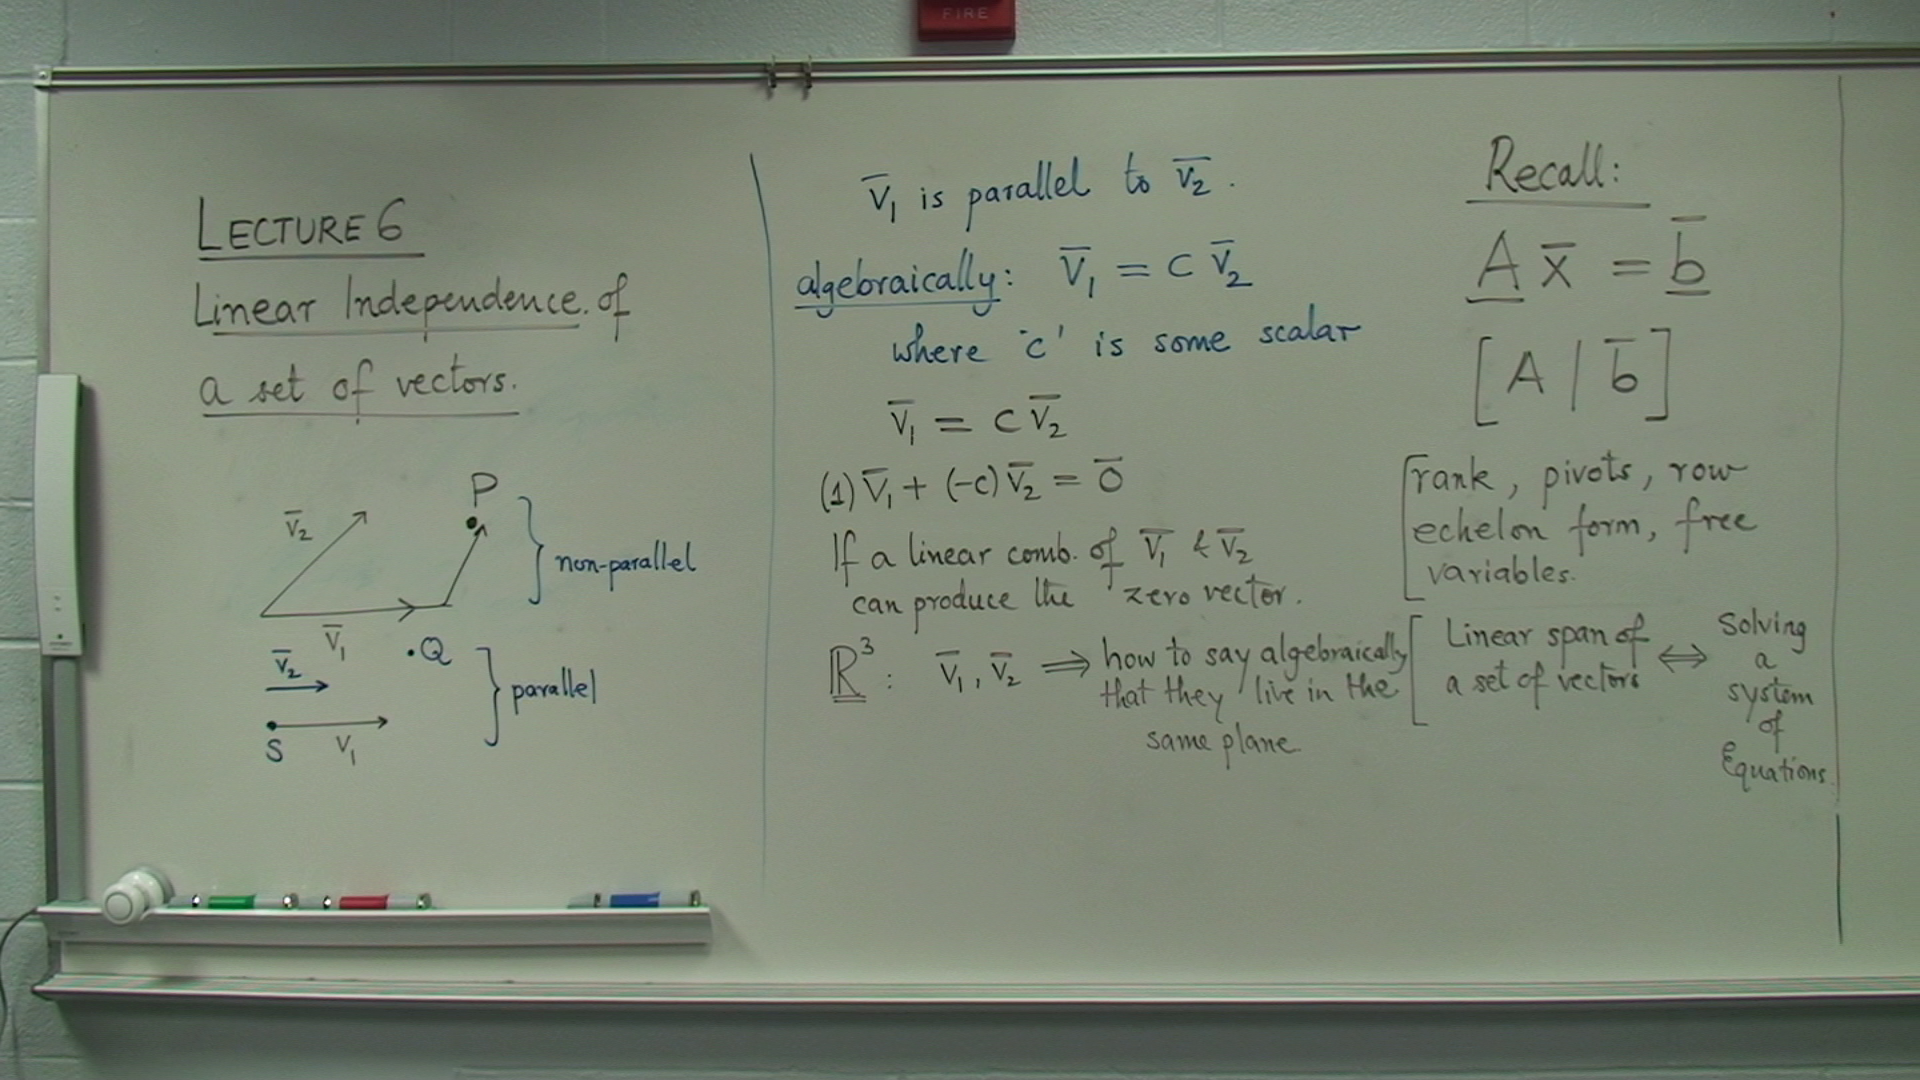 FIRE
LECTURE 6
Linear Independence of
a set of vectors.
P
v̄₂
non-parallel
v̄₁
.Q
v̄₂
parallel
S
v₁
v̄₁ is parallel to v̄₂.
algebraically: v̄₁ = c v̄₂
where 'c' is some scalar
v̄₁ = c v̄₂
(1) v̄₁ + (-c) v̄₂ = 0̄
If a linear comb. of v̄₁ & v̄₂
can produce the zero vector.
ℝ³: v̄₁, v̄₂ ⇒ how to say algebraically
that they live in the
same plane.
Recall:
A x̄ = b̄
[A | b̄]
rank, pivots, row
echelon form, free
variables.
Linear span of
a set of vectors
⇔
Solving
a
system
of
Equations